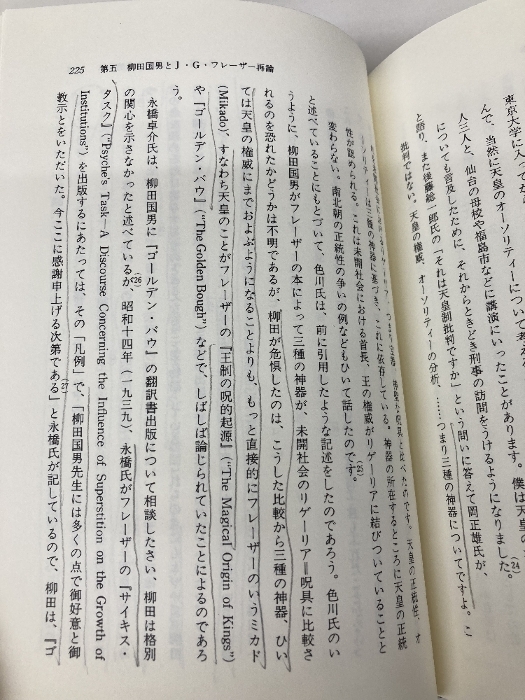 東京大学に入ってか
んで、当然に天皇のオーソリティーについ
人三人と、仙台の母校や福島市などに講演にいったことがあります。僕は天皇の
についても言及したために、それからときどき刑事の訪問をうけるようになりました。(24)
と語り、また後藤総一郎氏の「それは天皇制批判ですか」という問いに答えて岡正雄氏が、
批判ではない。天皇の権威、オーソリティーの分析、……つまり三種の神器についてですよ。こ
225 第五 柳田国男とJ・G・フレーザー再論
は三種の神器に基づき、これに依存している。神器の所在するところに天皇の正統
性が認められる。これは未開社会における首長、王の権威がリゲーリアに結びついていることと
変わらない。南北朝の正統性の争いの例などもひいて話したのです。(25)
と述べていることにもとづいて、色川氏は、前に引用したような記述をしたのであろう。色川氏のい
うように、柳田国男がフレーザーの本によって三種の神器が、未開社会のリゲーリア＝呪具に比較さ
れるのを恐れたかどうかは不明であるが、柳田が危惧したのは、こうした比較から三種の神器、ひい
ては天皇の権威にまでおよぶようになることよりも、もっと直接的にフレーザーのいうミカド
(Mikado)、すなわち天皇のことがフレーザーの『王制の呪的起源』("The Magical Origin of Kings")
や『ゴールデン・バウ』("The Golden Bough") などで、しばしば論じられていたことによるのであろ
う。
永橋卓介氏は、柳田国男に『ゴールデン・バウ』の翻訳書出版について相談したさい、柳田は格別
の関心を示さなかったと述べているが、(26)昭和十四年(一九三九)、永橋氏がフレーザーの『サイキス・
タスク』("Psyche's Task—A Discourse Concerning the Influence of Superstition on the Growth of
Institutions") を出版するにあたっては、その「凡例」で、「柳田国男先生には多くの点で御好意と御
教示とをいただいた。今ここに感謝申上げる次第である」(27)と永橋氏が記しているので、柳田は、『ゴ